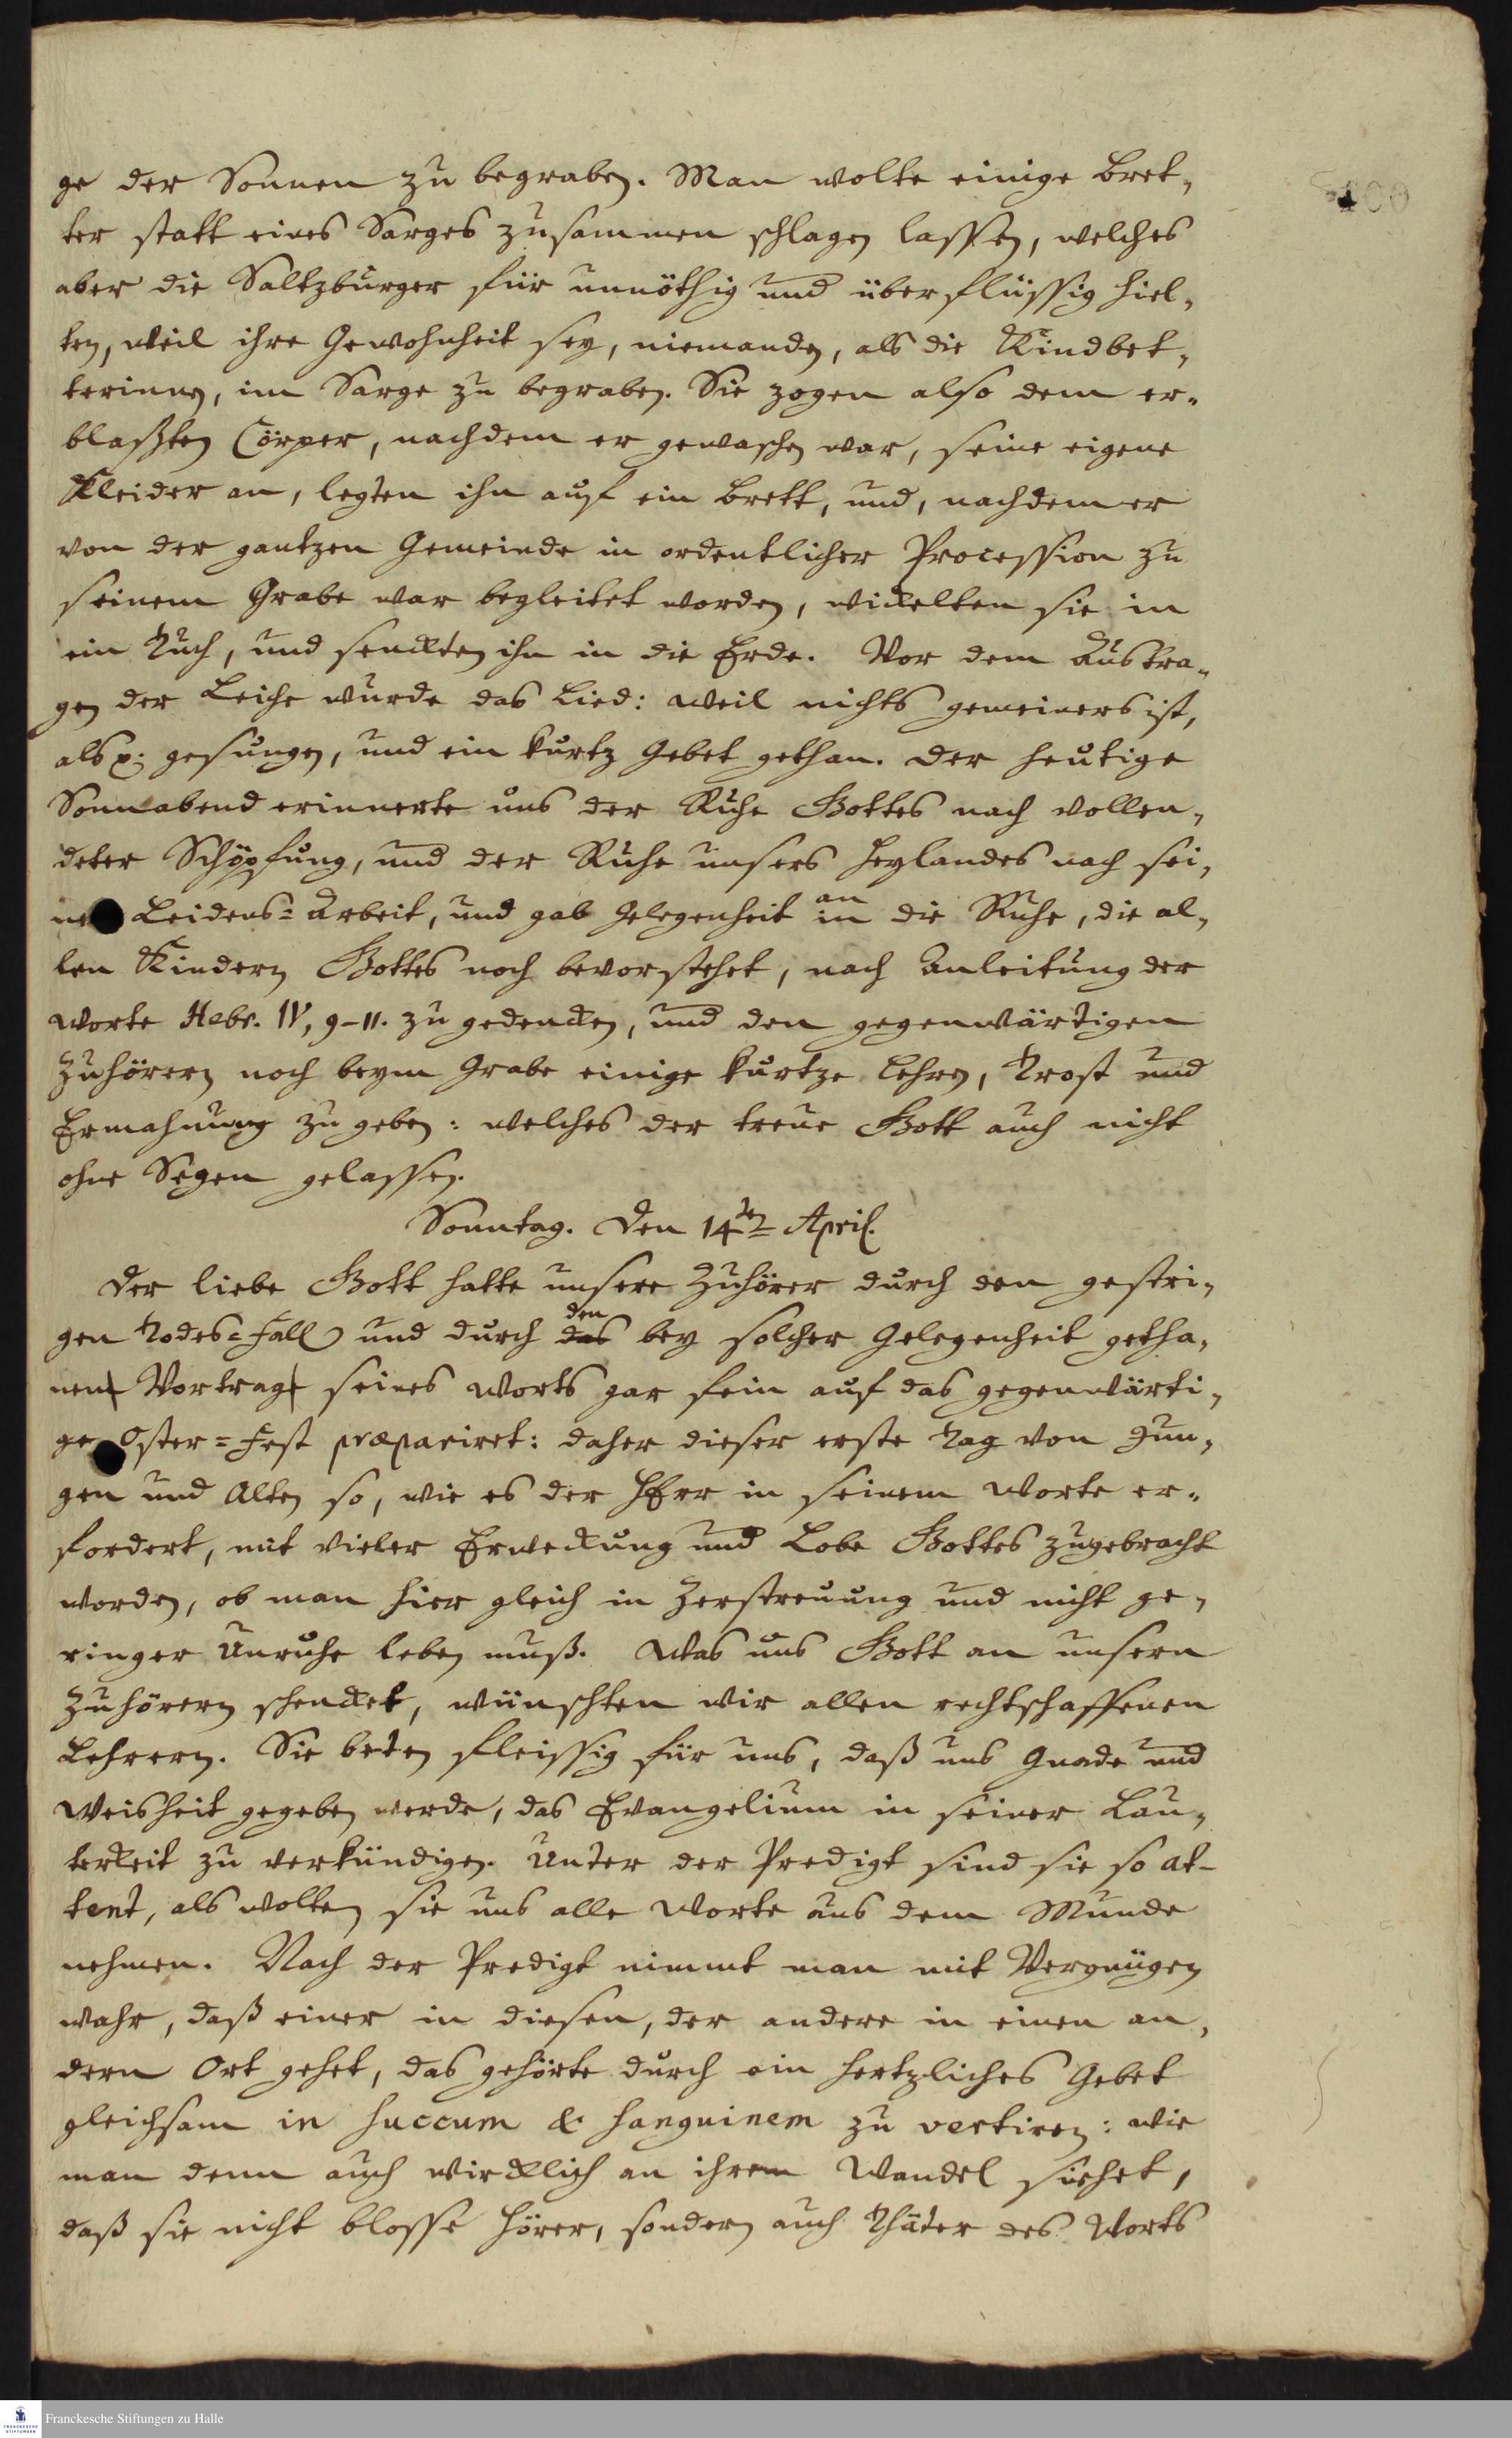 ge der Sonnen zu begraben. Man wolte einige Bret,
ter statt eines Sarges zusammen schlagen lassen, welches
aber die Saltzburger für unnöthig und überflüssig hiel,
ten, weil ihre Gewohnheit sey, niemanden, als die Kindbet,
terinnen, im Sarge zu begraben. Sie zogen also dem er,
blaßten Cörper, nachdem er gewaschen war, seine eigene
Kleider an, legten ihn auf ein Brett, und, nachdem er
von der gantzen Gemeinde in ordentlicher Procession zu
seinem Grabe war begleitet worden, wickelten sie in
ein Tuch, und senckten ihn in die Erde. Vor dem Austra,
gen der Leiche wurde das Lied: Weil nichts gemeiners ist,
als p. gesungen, und ein kurtz Gebet gethan. Der heutige
Sonnabend erinnerte uns der Ruhe Gottes nach vollen,
deter Schöpfung, und der Ruhe unsers Heylandes nach sei,
ne Leidens=Arbeit, und gab Gelegenheit in an die Ruhe, die al,
len Kindern Gottes noch bevorstehet, nach Anleitung der
Worte Hebr. IV, 9-11. zu gedencken, und den gegenwärtigen
Zuhörern noch beym Grabe einige kurtze Lehren, Trost und
Ermahnung zu geben: welches der treue Gott auch nicht
ohne Segen gelassen.
Sonntag. Den 14ten April.
Der liebe Gott hatte unsere Zuhörer durch den gestri,
gen Todes=Fall und durch das den bey solcher Gelegenheit getha,
nen Vortrag seines Worts gar fein auf das gegenwärti,
ge Oster=Fest præpariret: daher dieser erste Tag von Jun,
gen und Alten so, wie es der HErr in seinem Worte er,
fordert, mit vieler Erweckung und Lobe Gottes zugebracht
worden, ob man hier gleich in Zerstreuung und nicht ge,
ringer Unruhe leben muß. Was uns Gott an unsern
Zuhörern schencket, wünschten wir allen rechtschaffenen
Lehrern. Sie beten fleissig für uns, daß uns Gnade und
Weisheit gegeben werde, das Evangelium in seiner Lau,
terkeit zu verkündigen. Unter der Predigt sind sie so at-
tent, als wolten sie uns alle Worte aus dem Munde
nehmen. Nach der Predigt nimmt man mit Vergnügen
wahr, daß einer in diesen, der andere in einen an,
dern Ort gehet, das gehörte durch ein hertzliches Gebet
gleichsam in succum & sanguinem zu vertiren: wie
man denn auch wircklich an ihrem Wandel siehet,
daß sie nicht blosse Hörer, sondern auch Thäter des Worts
Franckesche Stiftungen zu Halle